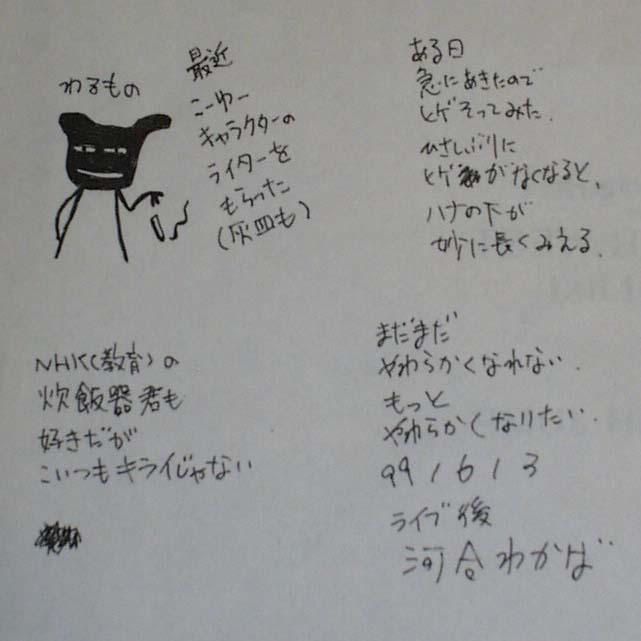 わるもの
最近
こーゆー
キャラクターの
ライターを
もらった
(灰皿も)
NHK(教育)の
炊飯器君も
好きだが
こいつもキライじゃない
ある日
急にあきたので
ヒゲそってみた.
ひさしぶりに
ヒゲがなくなると、
ハナの下が
妙に長くみえる.
まだまだ
やわらかくなれない.
もっと
やわらかくなりたい.
99/6/3
ライブ後
河合わかば